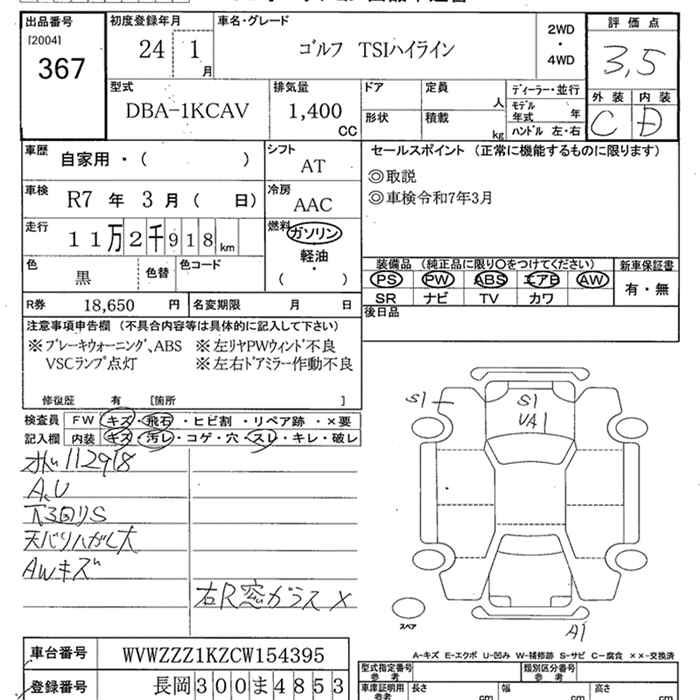 出品番号 初度登録年月 車名・グレード 2WD ・ 4WD 評価点
[2004] 367 24 1月 ゴルフ TSIハイライン 3,5
外装 内装
C D
型式 DBA-1KCAV 排気量 1,400 CC ドア 定員 人 ディーラー・並行
形状 積載 kg モデル年式 年
ハンドル 左・右
車歴 自家用・( ) シフト AT セールスポイント (正常に機能するものに限ります)
◎取説
車検 R7年3月( 日) 冷房 AAC ◎車検令和7年3月
走行 11万2千918km 燃料 ガソリン・軽油・( )
色 黒 色替 色コード
装備品 (純正品に限り○をつけてください) 新車保証書
PS PW ABS エアB AW 有・無
SR ナビ TV カワ
R券 18,650円 名変期限 月 日 後日品
注意事項申告欄 (不具合内容等は具体的に記入して下さい)
※ブレーキウォーニング、ABS ※左リヤPWウィンド不良
VSCランプ点灯 ※左右ドアミラー作動不良
修復歴 有 [箇所 ]
検査員 FW キズ・飛石・ヒビ割・リペア跡・×要
記入欄 内装 キズ・汚レ・コゲ・穴・スレ・キレ・破レ
S1 S1
VA1
112918
A,U
下3回リS
天バリハガレ大
AWキズ
右R窓ガラス×
スペア
A1
A-キズ E-エクボ U-凹み W-補修跡 S-サビ C-腐食 ××-交換済
車台番号 WVWZZZ1KZCW154395 型式指定番号 参考 類別区分番号 参考
登録番号 長岡300ま4853 車庫証明用 参考 長さ cm 幅 cm 高さ cm